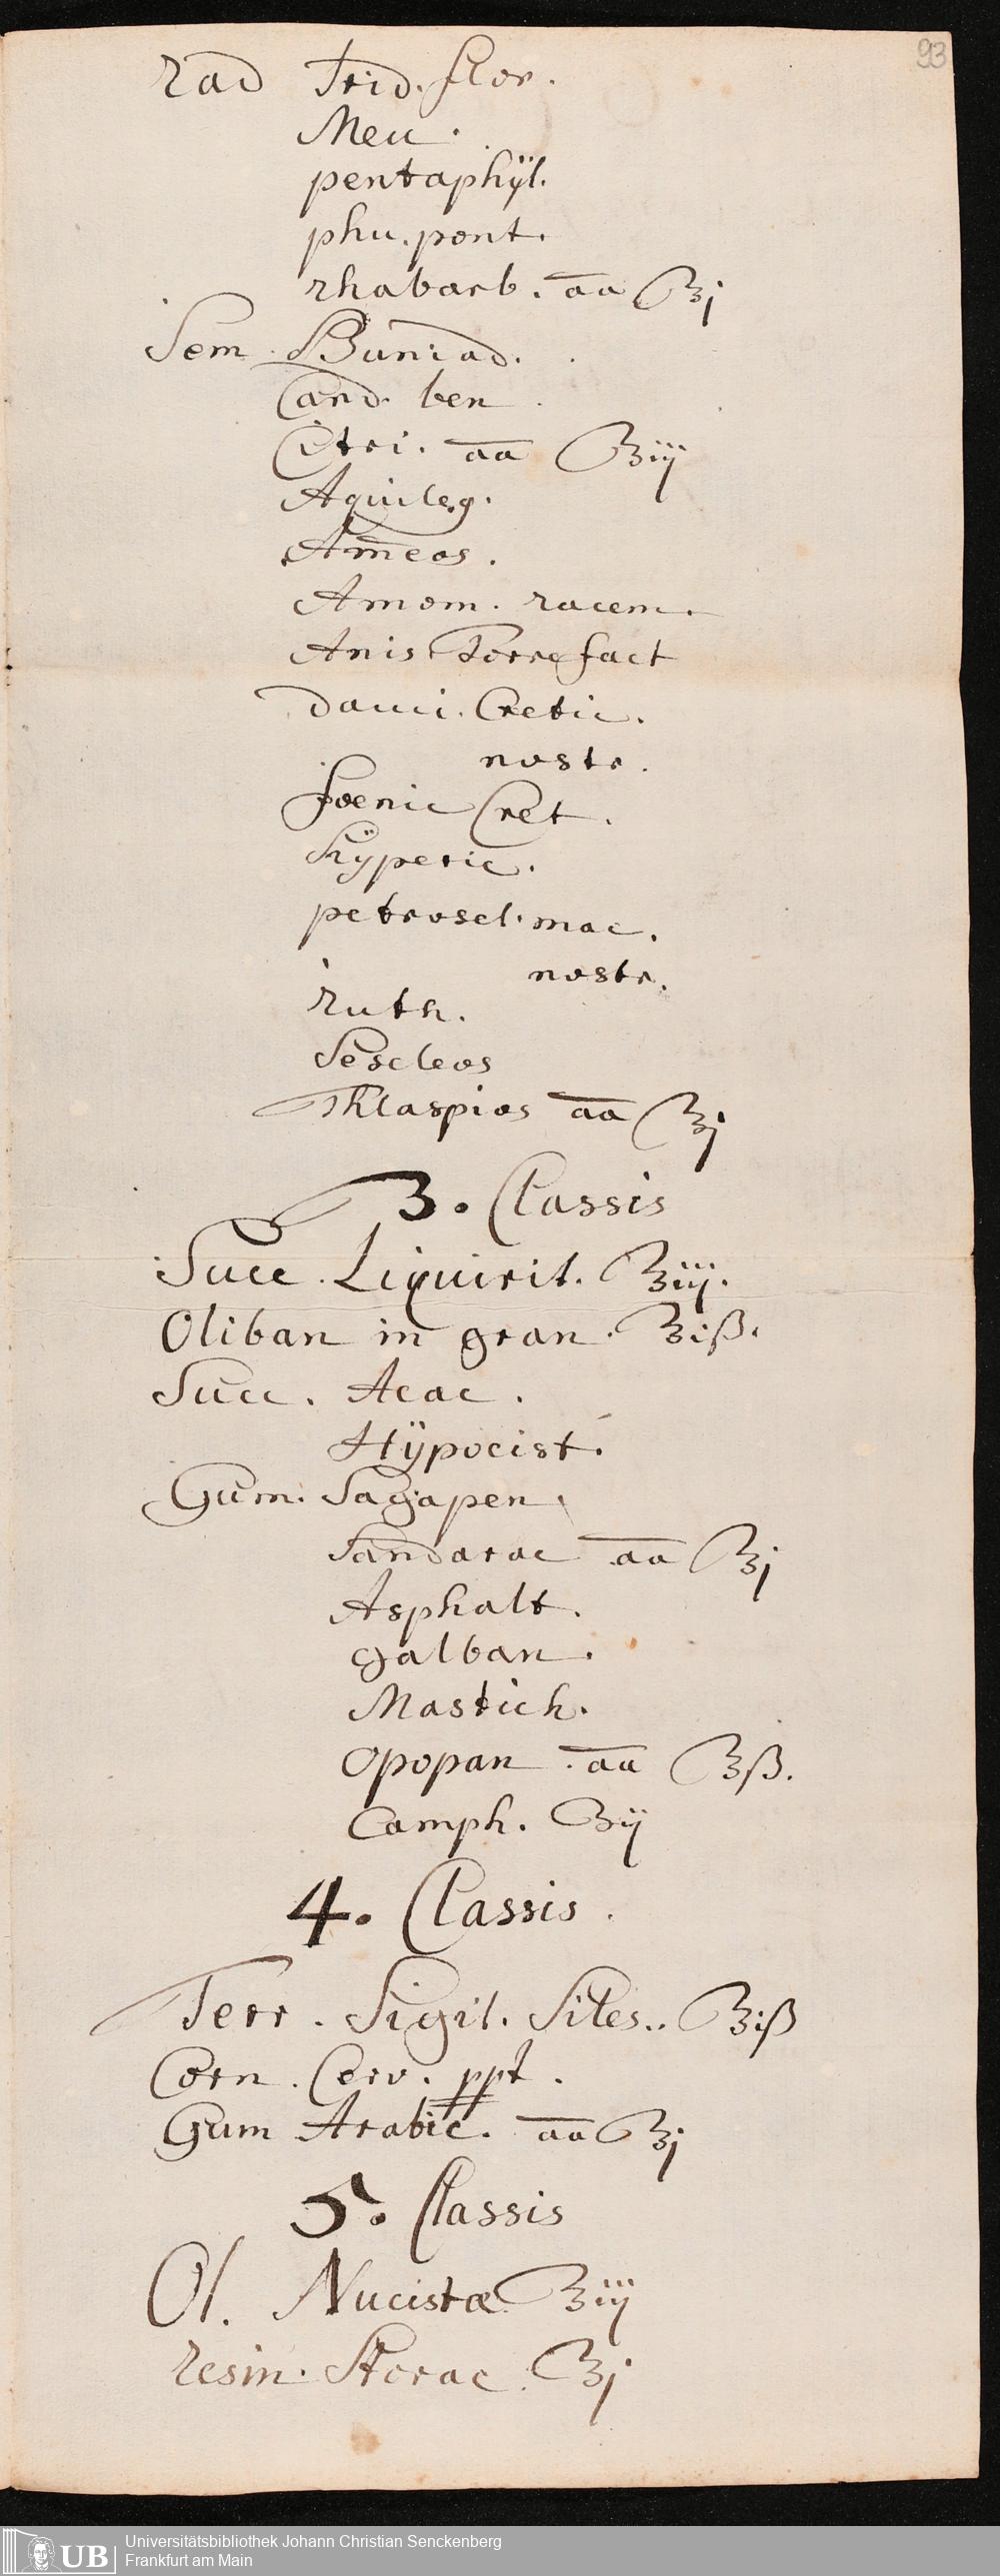 93
Rad Irid. flor.
Meu.
pentaphÿl.
phu. pont.
rhabarb. aa ℥j
Sem. Buniad.
Card. ben
Citri. aa ℥iij
Aquileg.
Am̄eos.
Amom. racem.
Anis Torrefact
dauci. Cretic.
nostr.
foenic Cret.
hÿperic.
petrosel. mac.
nostr.
ruth.
Seseleos
Thlaspios aa ℥j
3. Classis
Succ. Liquirit. ℥iij.
Oliban in gran. ℥iß.
Succ. Acac.
Hÿpocist.
Gum. Sagapen
Sandarac aa ℥j
Asphalt.
galban.
Mastich.
Opopan. aa ℥ß.
Camph. ℥ij
4. Classis.
Terr. Sigil. Siles. ℥iß
Corn. Cerv. ppt.
Gum Arabic. aa ℥j
5. Classis
Ol. Nucistæ ℥iij
resin. Storac. ℥j
UB Universitätsbibliothek Johann Christian Senckenberg
Frankfurt am Main